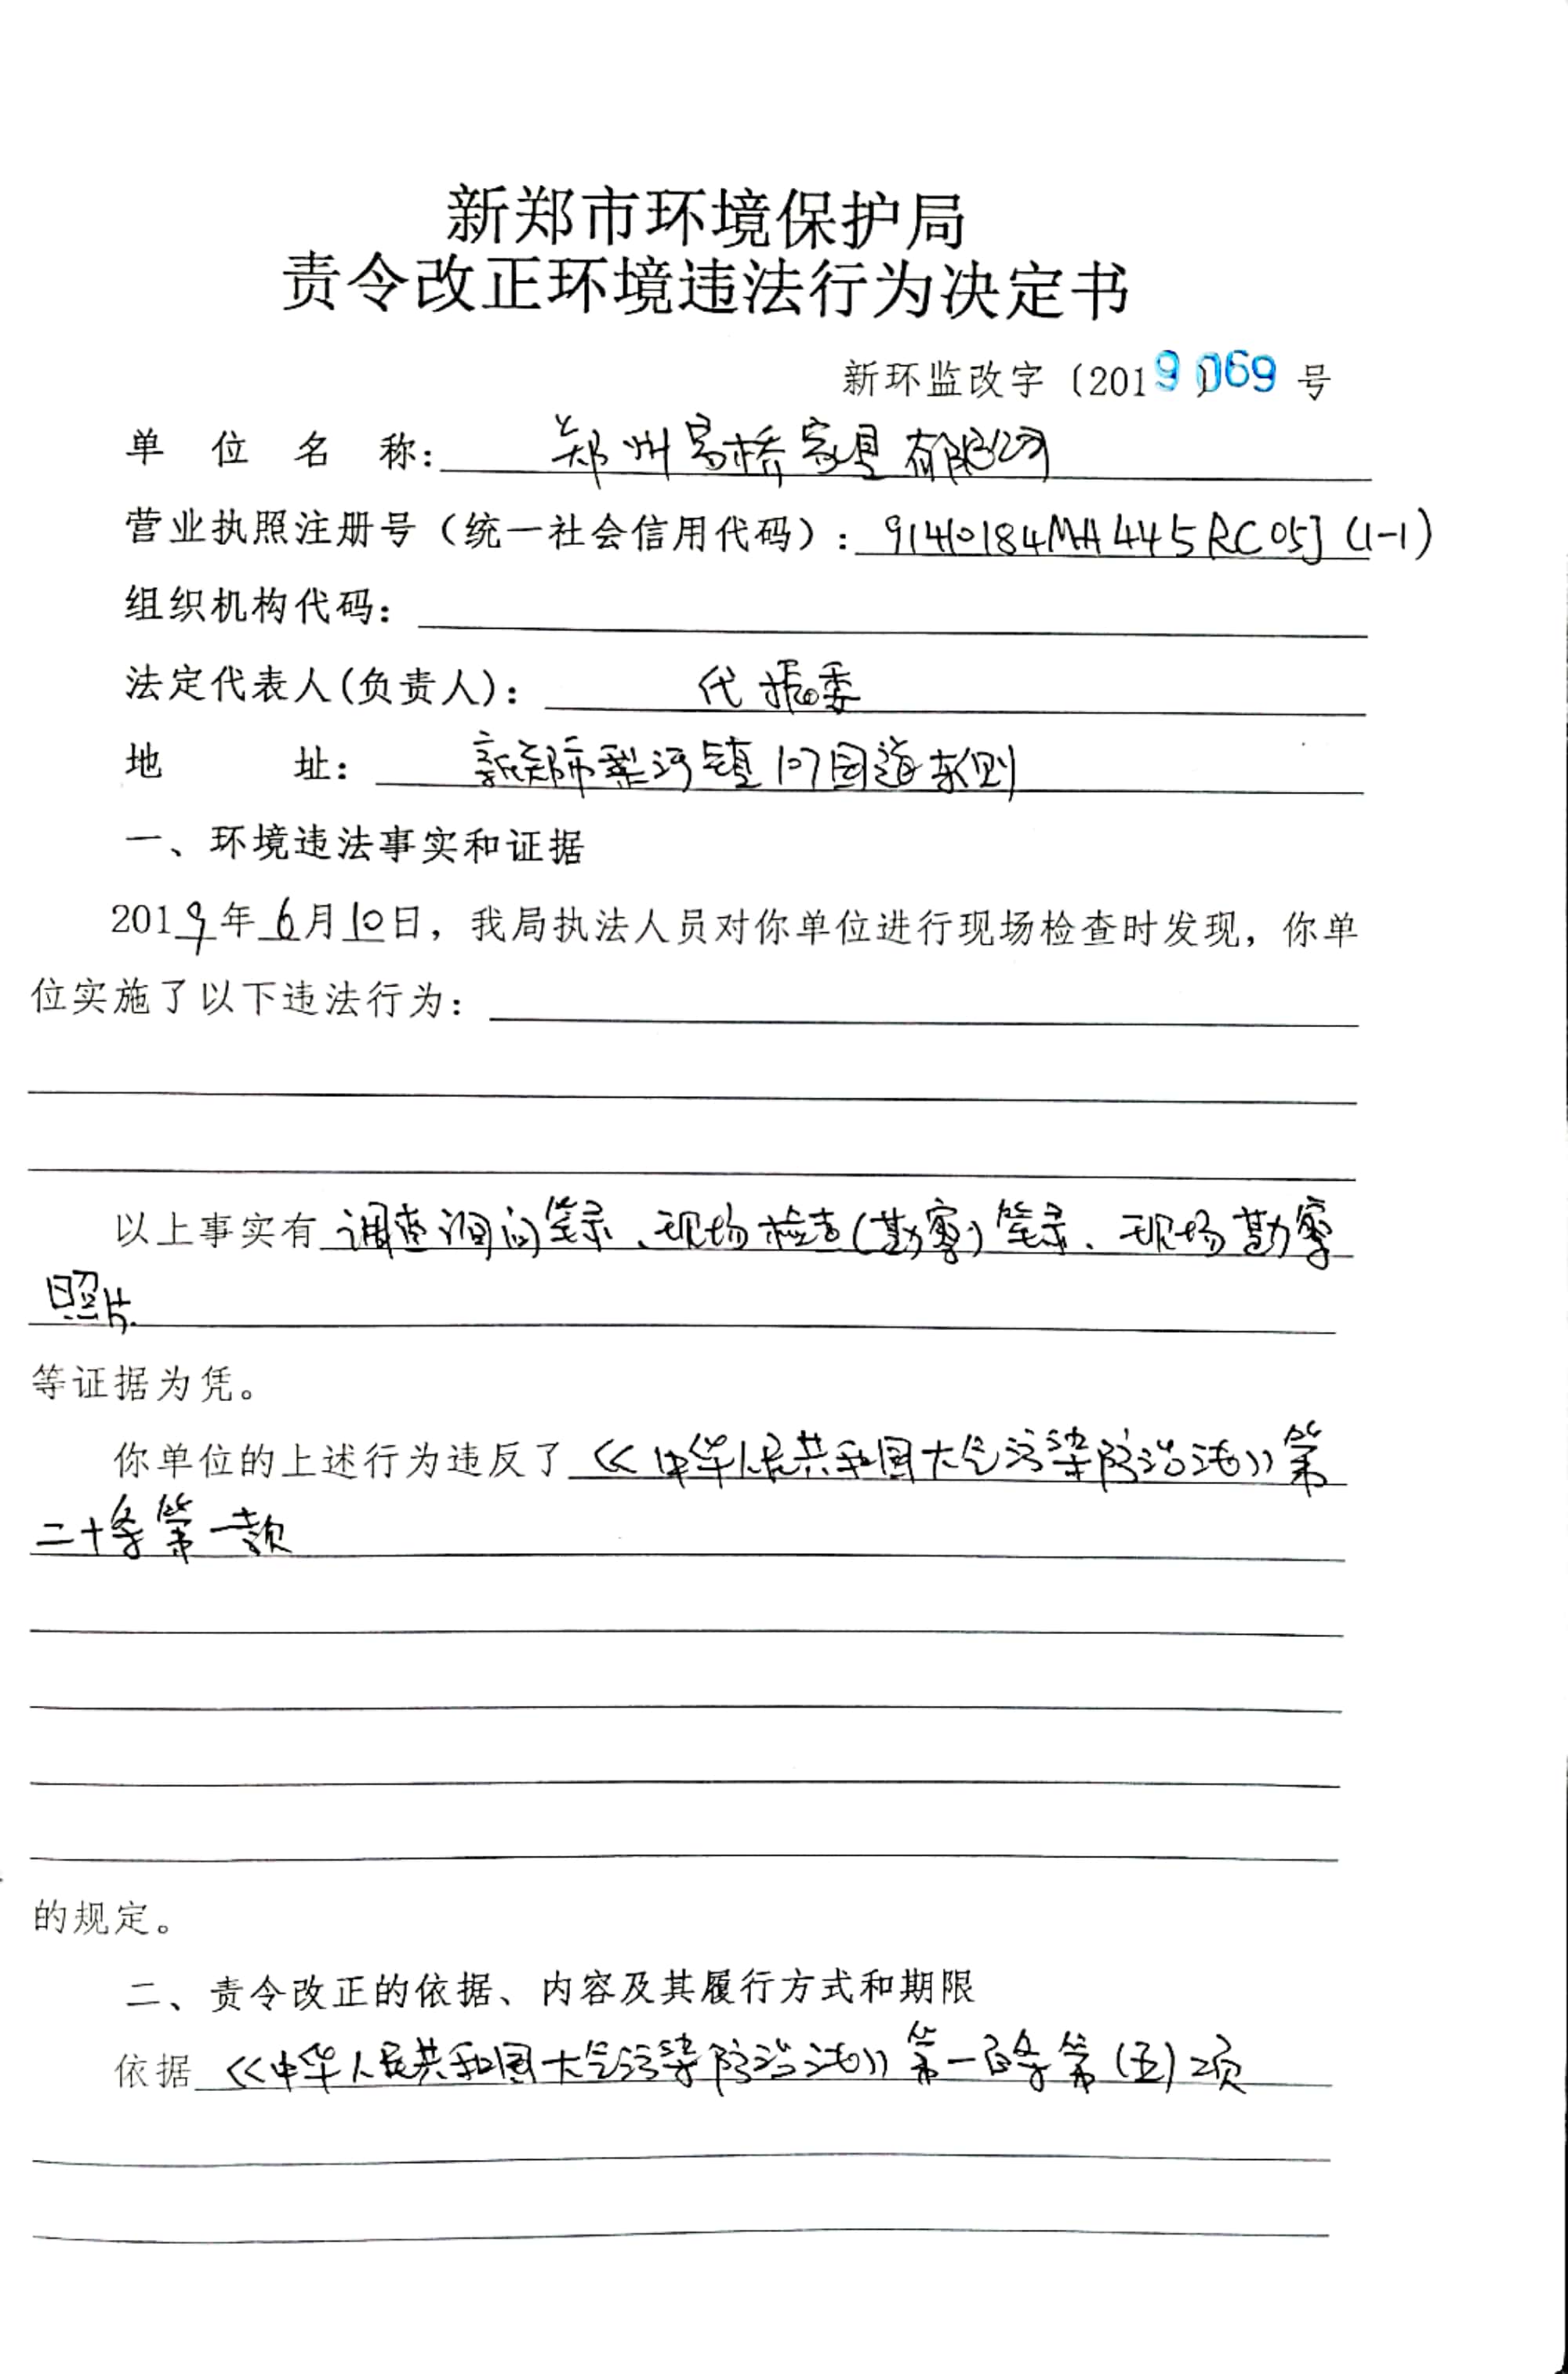 新郑市环境保护局
责令改正环境违法行为决定书
新环监改字〔2019〕069号
单位名称：郑州易桥家具有限公司
营业执照注册号（统一社会信用代码）：91410184MA445RC05J(1-1)
组织机构代码：
法定代表人(负责人)：代振委
地址：新郑市梨河镇107国道东侧
一、环境违法事实和证据
2019年6月10日，我局执法人员对你单位进行现场检查时发现，你单
位实施了以下违法行为：
以上事实有调查询问笔录、现场检查(勘察)笔录、现场勘察
照片
等证据为凭。
你单位的上述行为违反了《中华人民共和国大气污染防治法》第
二十条第一款
的规定。
二、责令改正的依据、内容及其履行方式和期限
依据《中华人民共和国大气污染防治法》第一百条第(五)项